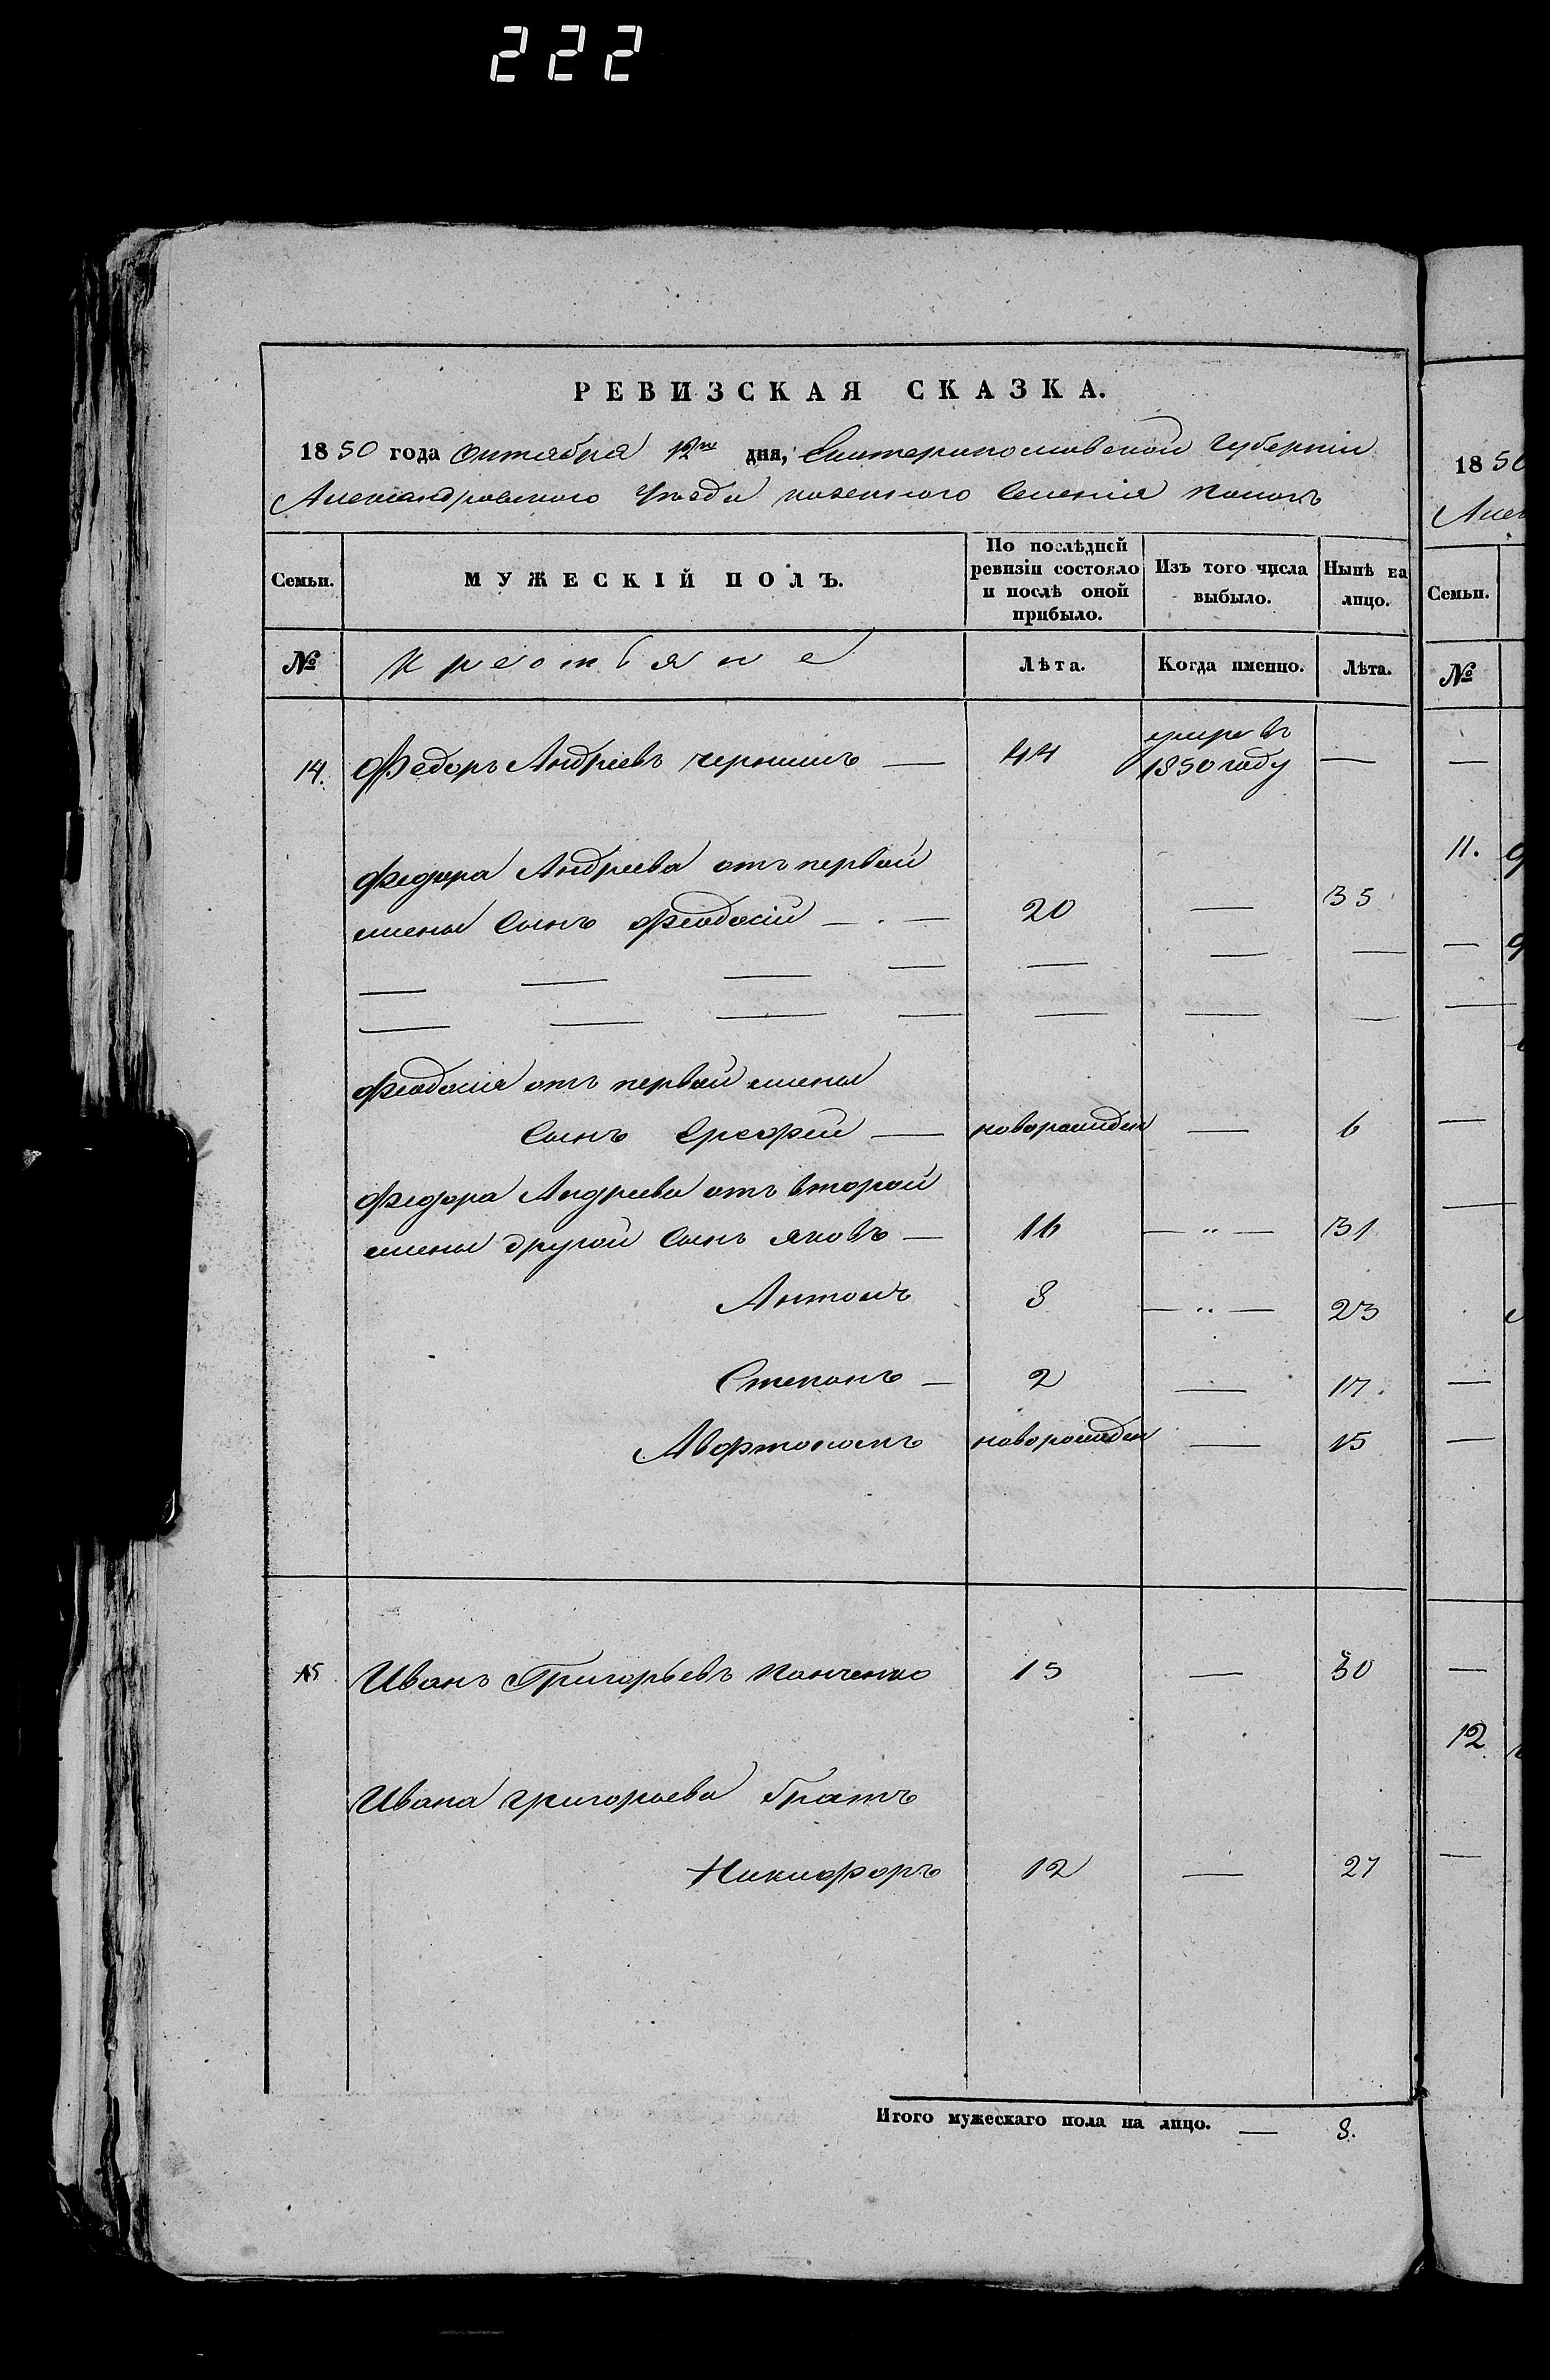 222
РЕВИЗСКАЯ СКАЗКА.
1850 года октября 12го дня, Екатеринославской Губернiи
Александровского Уѣзда казенного Селенiя
Семьи.
МУЖЕСКIЙ ПОЛЪ.
По послѣдней ревизiи состояло и послѣ оной прибыло.
Изъ того числа выбыло.
Нынѣ на лицо.
№
Крестьяне
Лѣта.
Когда именно.
Лѣта.
14. Федоръ Андреевъ — 44 умре въ 1850 году —
Федора Андреева отъ первой
жены Сынъ Феодосiй — 20 — 35
Феодосiя отъ первой жены
Сынъ Ерефей — новорожден — 6
Федора Андреева отъ второй
жены другой Сынъ Яковъ — 16 — " — 31
Антонъ 8 — " — 23
Степанъ — 2 — 17
новорожден — 15
15 Иванъ Григорьевъ Панченко 15 — 30
Ивана Григорьева братъ
Никифоръ 12 — 27
Итого мужескаго пола на лицо. — 8.
1850
Семьи.
№
11.
12